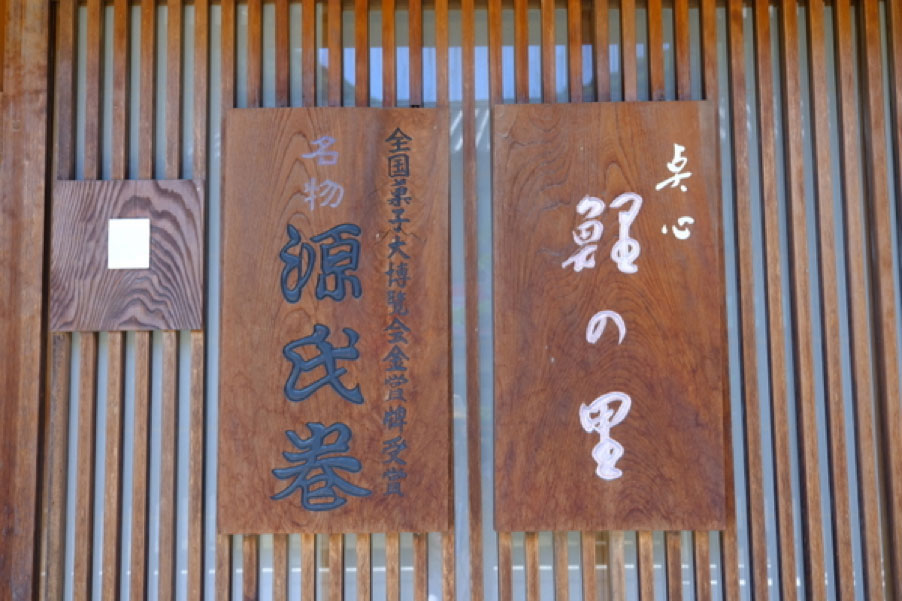 点心
鯉の里
全国菓子大博覧会金賞牌受賞
名物
源氏巻